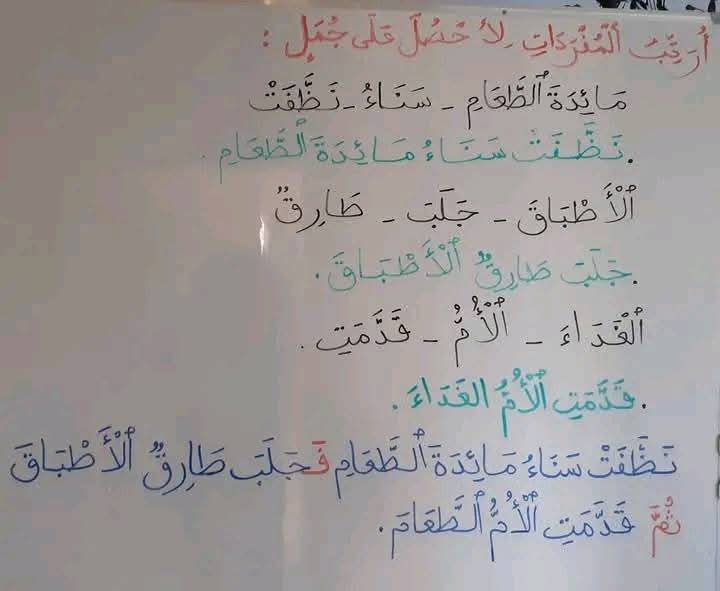 أُرَتِّبُ ٱلْمُفْرَدَاتِ لِأَحْصُلَ عَلَى جُمَلٍ :
مَائِدَةَ ٱلطَّعَامِ - سَنَاءُ - نَظَّفَتْ
. نَظَّفَتْ سَنَاءُ مَائِدَةَ ٱلطَّعَامِ .
ٱلْأَطْبَاقَ - جَلَبَ - طَارِقٌ
. جَلَبَ طَارِقٌ ٱلْأَطْبَاقَ .
ٱلْغَدَاءَ - ٱلْأُمُّ - قَدَّمَتِ .
. قَدَّمَتِ ٱلْأُمُّ الغَدَاءَ .
نَظَّفَتْ سَنَاءُ مَائِدَةَ ٱلطَّعَامِ فَجَلَبَ طَارِقٌ ٱلْأَطْبَاقَ
ثُمَّ قَدَّمَتِ ٱلْأُمُّ ٱلطَّعَامَ .